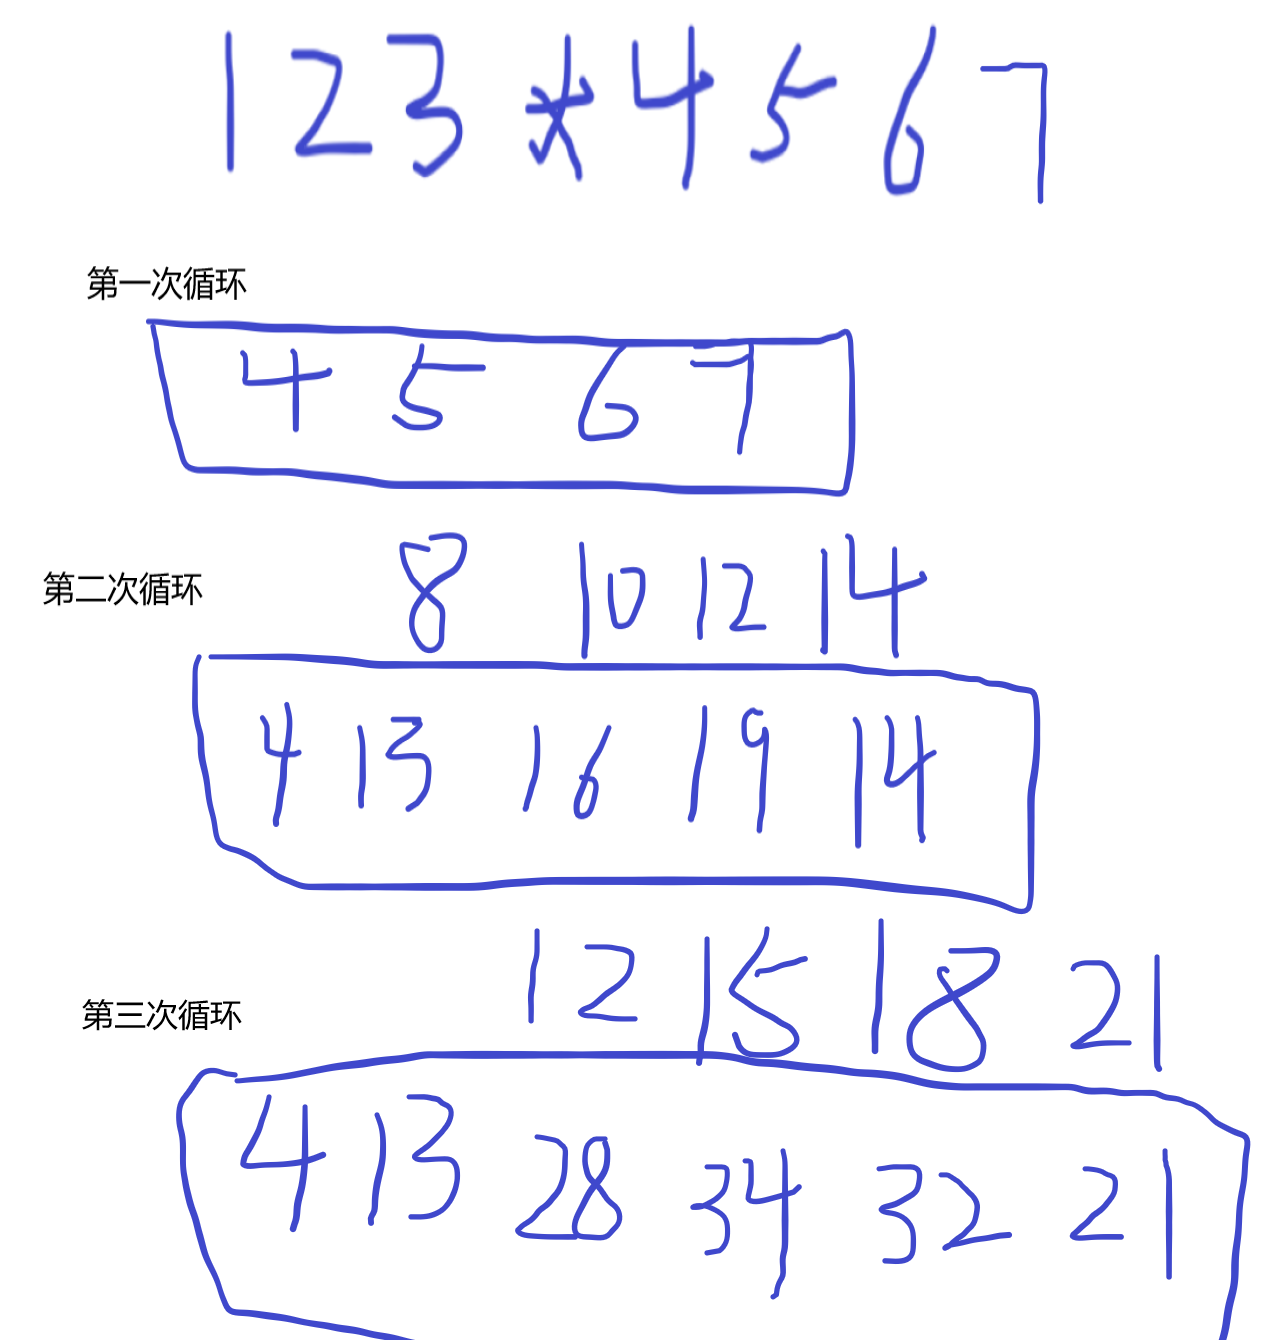 123*4567
第一次循环
4 5 6 7
8 10 12 14
第二次循环
4 13 16 19 14
12 15 18 21
第三次循环
4 13 28 34 32 21